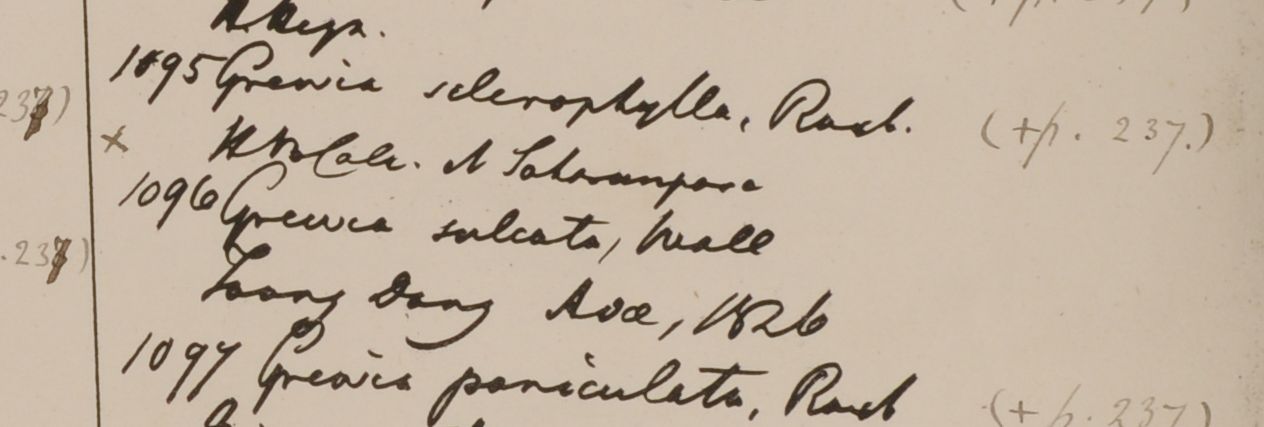 1095 Grewia sclerophylla, Roxb. (+p. 237.)
237)
x H B Calc. A Saharunpore
1096 Grewia sulcata, Wall
.237)
Toong Dong Ava, 1826
1097 Grewia paniculata, Roxb (+p. 237)